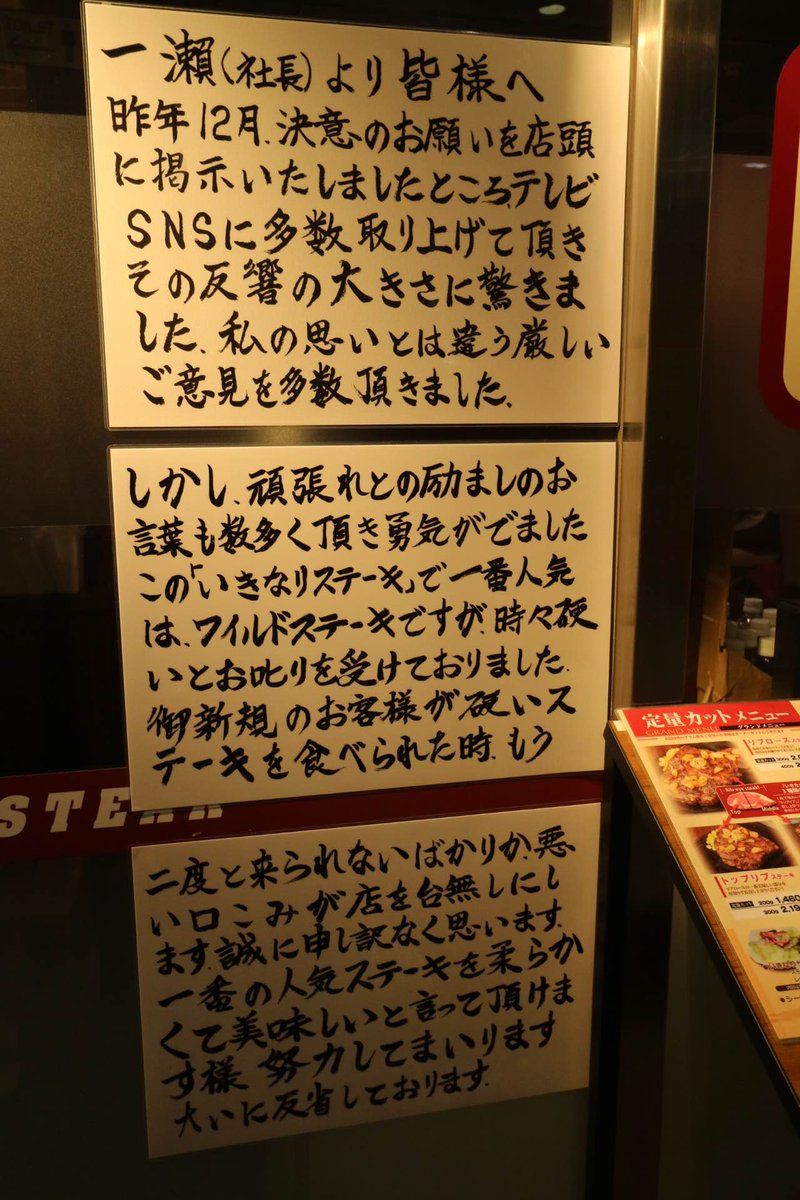 一瀬(社長)より皆様へ
昨年12月、決意のお願いを店頭
に掲示いたしましたところ、テレビ
SNSに多数取り上げて頂き
その反響の大きさに驚きま
した、私の思いとは違う厳しい
ご意見を多数頂きました、
しかし、頑張れとの励ましのお
言葉も数多く頂き勇気がでました
この「いきなりステーキ」で一番人気
は、ワイルドステーキですが、時々硬
いとお叱りを受けておりました、
御新規のお客様が硬いス
テーキを食べられた時、もう
二度と来られないばかりか、悪
い口こみが店を台無しにし
ます、誠に申し訳なく思います、
一番の人気ステーキを柔らか
くて美味しいと言って頂けま
す様 努力してまいります
大いに反省しております、
STEAK
定量カットメニュー
GRAND MENU グランドメニュー
リブロース
Rib-eye steak!
Top Middle
トップリブステーキ
定量カット 200g 1,460
300g 2,19